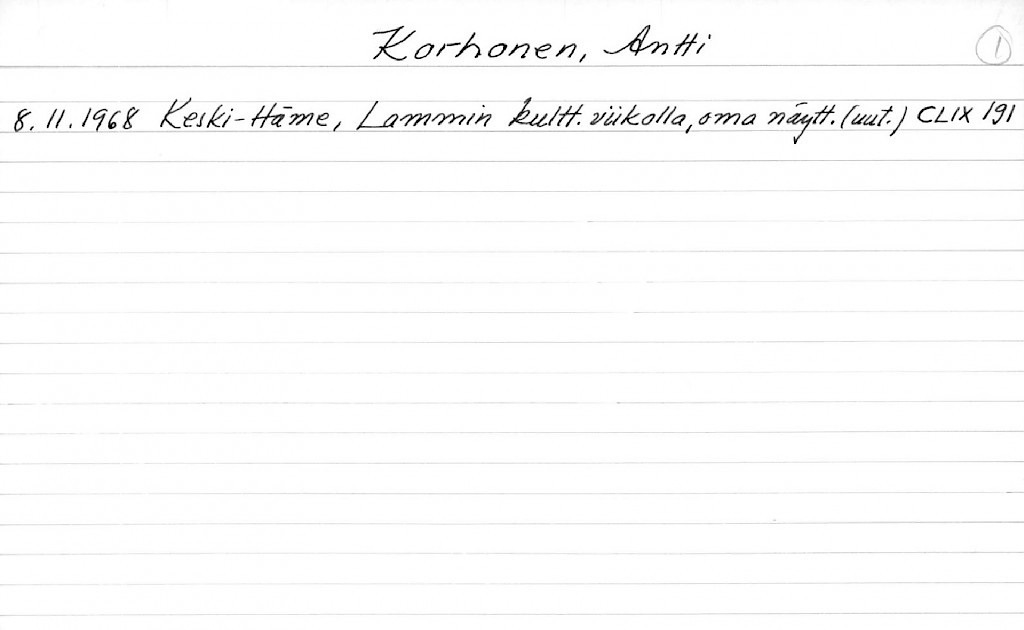 Korhonen, Antti 1
8.11.1968 Keski-Häme, Lammin kultt. viikolla, oma näytt. (uut.) CLIX 191